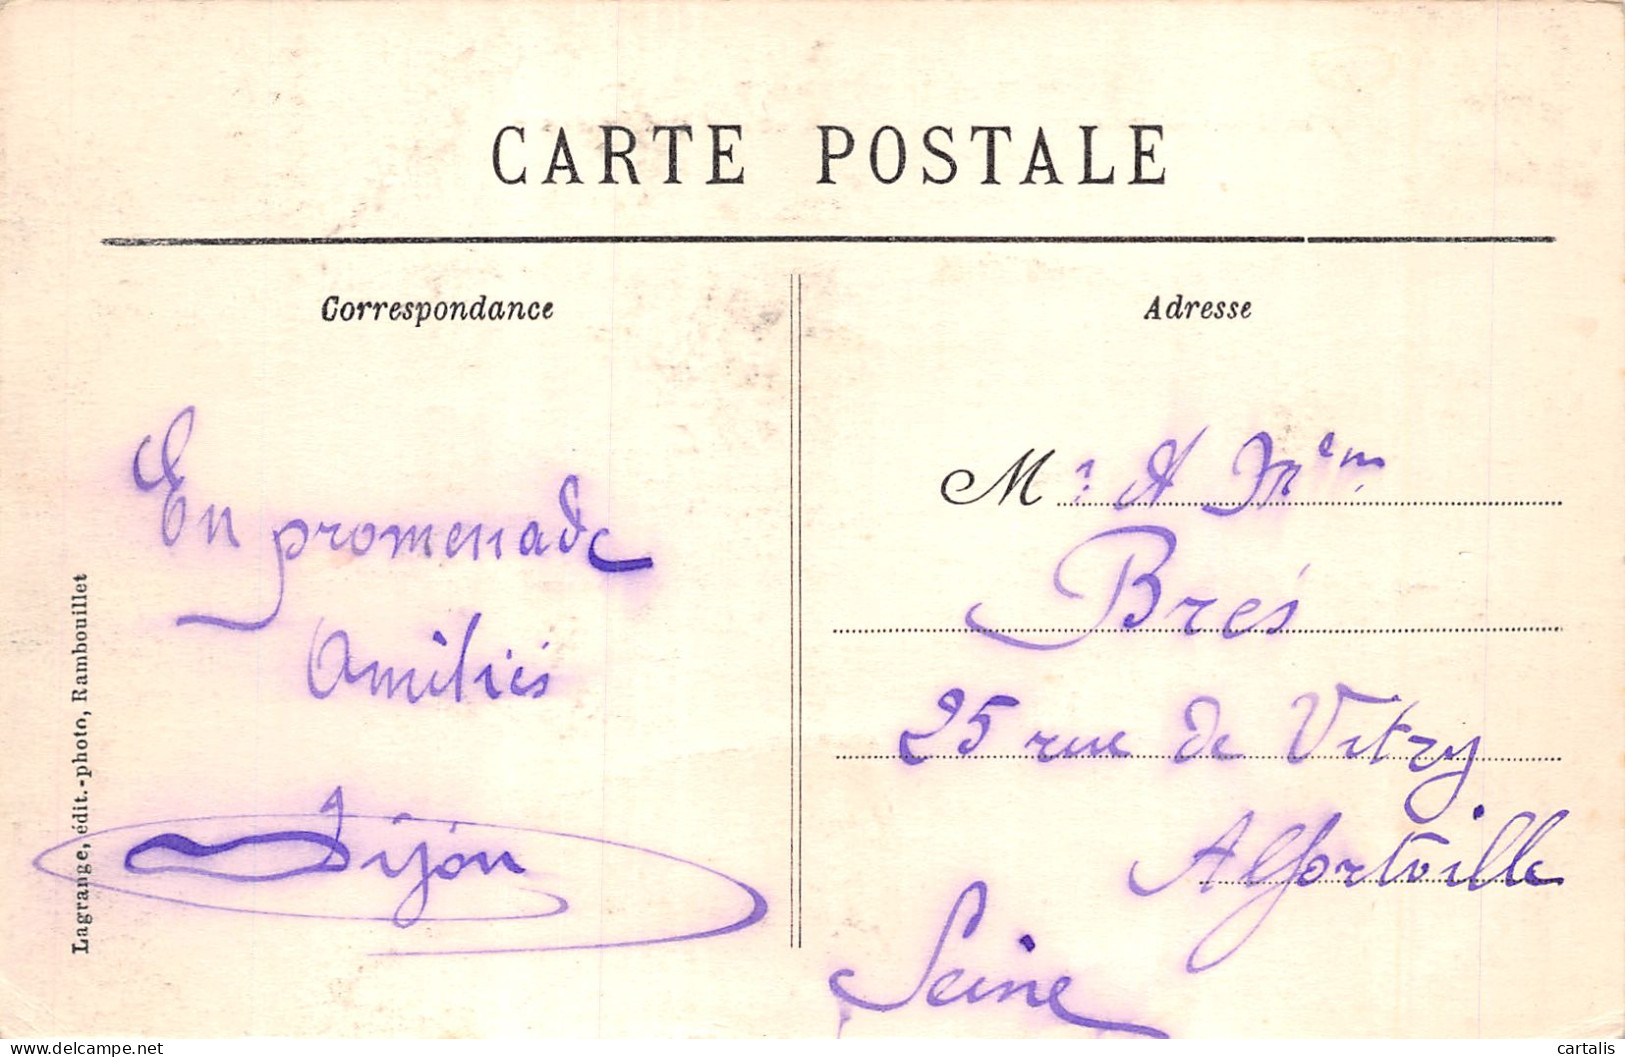 CARTE POSTALE
Correspondance
Adresse
En promenade
Amitiés
Dijon
Lagrange, édit.-photo, Rambouillet
M
Brés
25 rue de Vitry
Alfortville
Seine
delcampe.net
cartalis